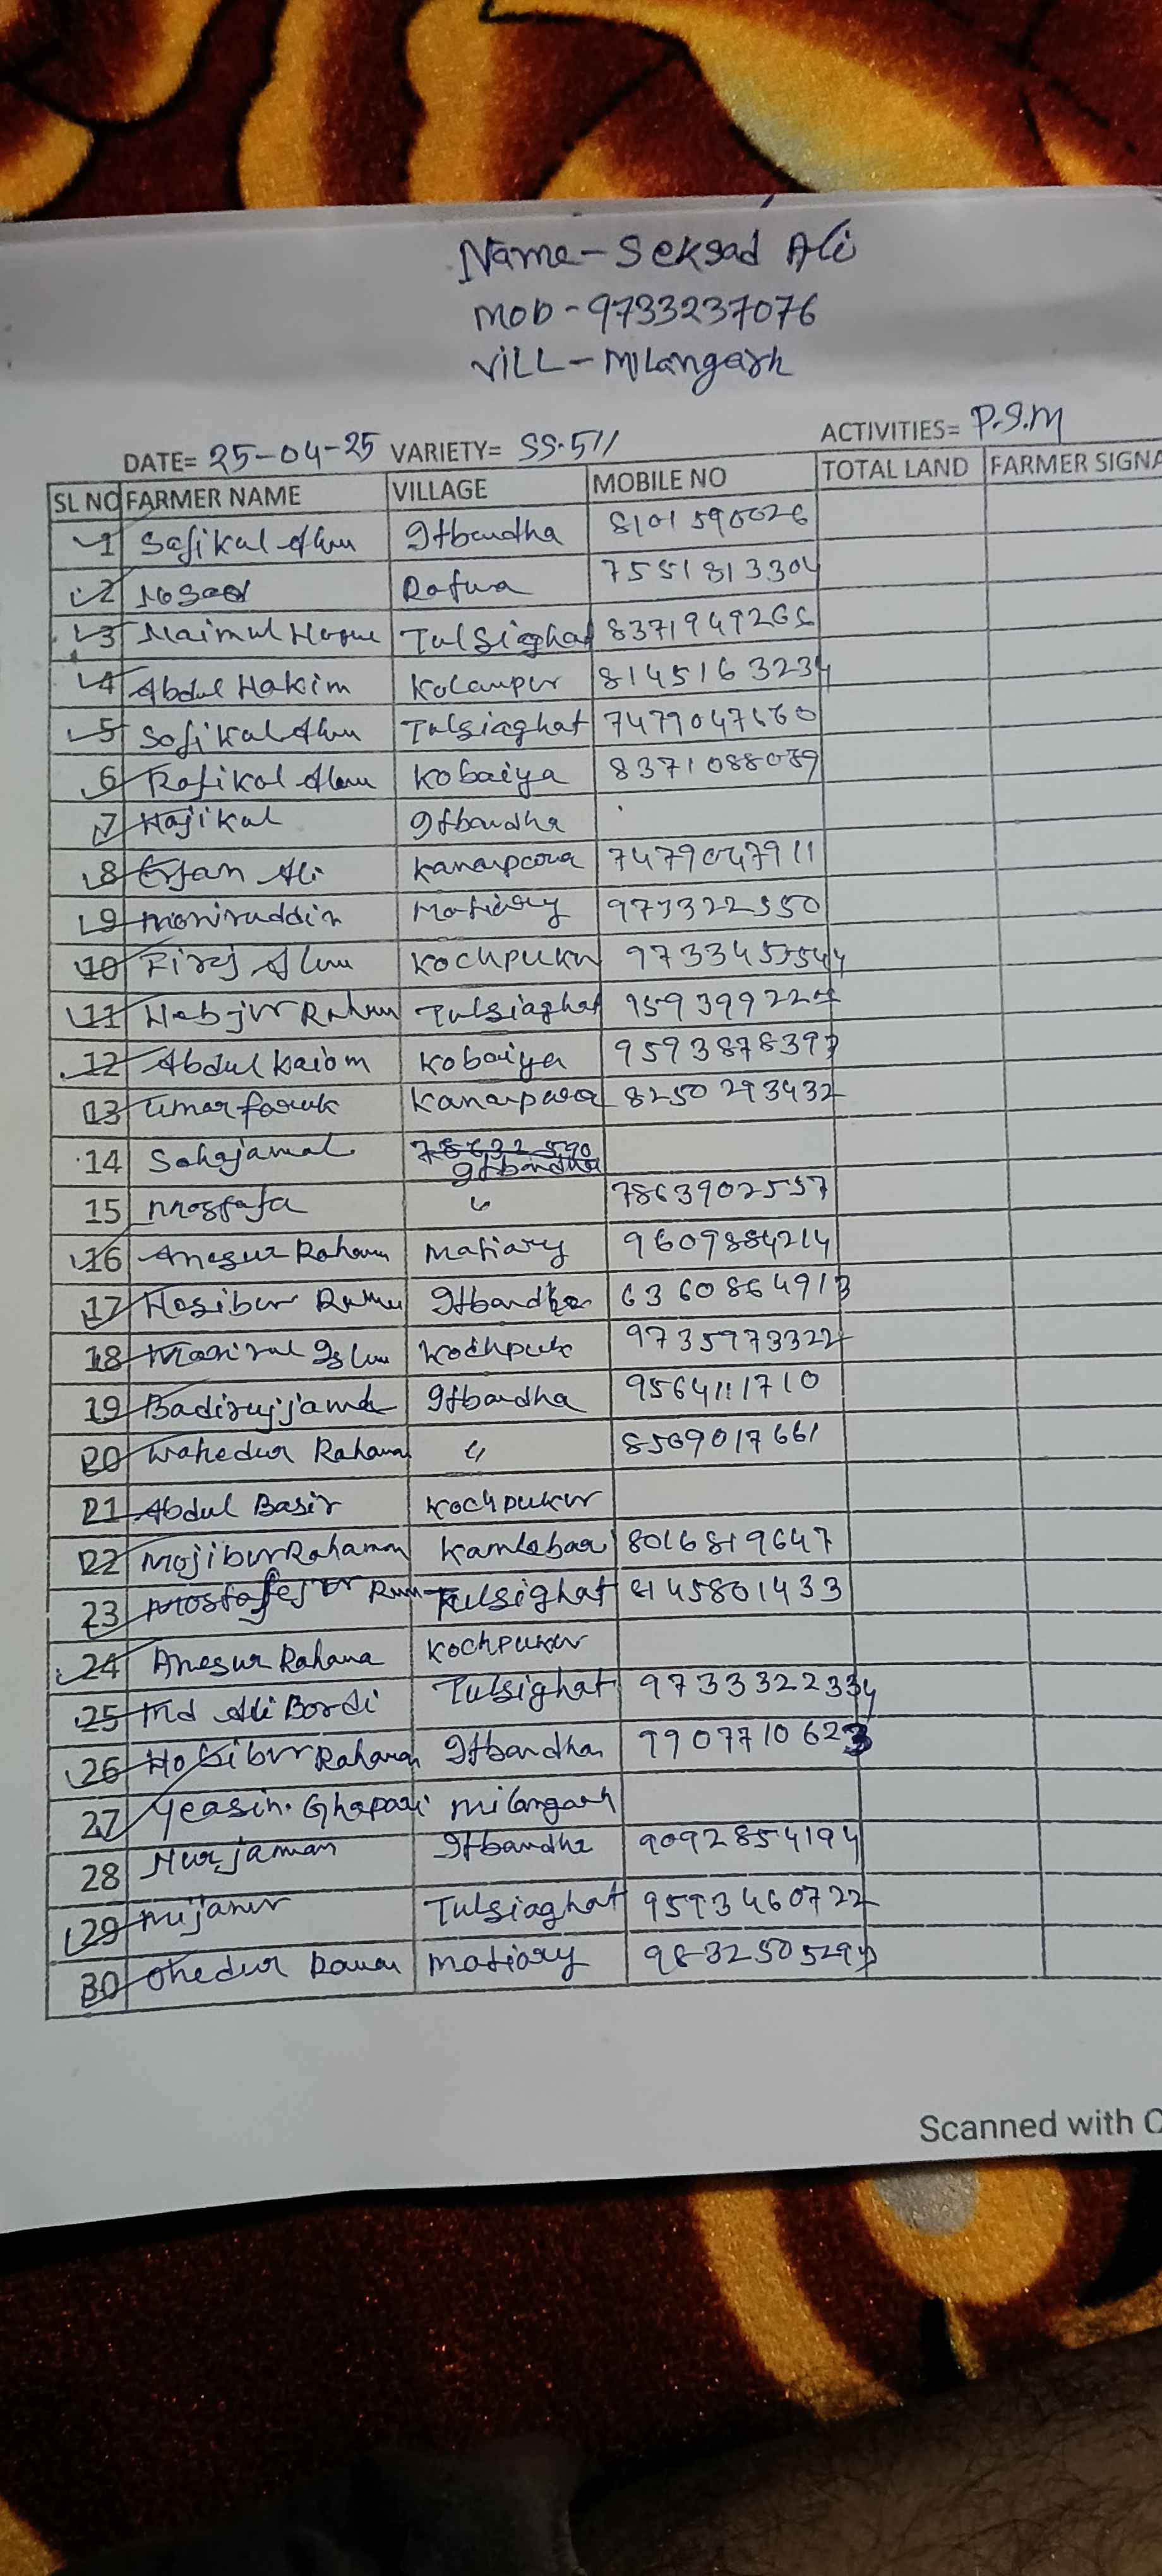 Name - Seksad Ali
MOD - 9733237076
VILL - Milangarh
DATE= 25-04-25 VARIETY= SS-511 ACTIVITIES= P.S.M
SL NO FARMER NAME VILLAGE MOBILE NO TOTAL LAND FARMER SIGNA
1 Safikul Alam Itbandha
2 Rafua
3 Maimul Hoque Tulsighat
4 Abdul Hakim Kolanpur 8145163234
5 Sofikul Alam Tulsiaghat
6 Rofikol Alam Kobaiya 8371088089
7 Hajikul Itbandha
8 Ersan Ali Kanarpara 7479047911
9 Moniruddin Matiary 973322550
10 Firoj Alam Kochpukur
11 Tulsiaghat
12 Abdul Kaiom Kobaiya 9593878397
13 Umar faruk Kanarpara 8250293432
14 Sahajamal Itbandha
15 Mostafa " 7863902557
16 Anesur Raham Matiary 9609884214
17 Hasibur Itbandha 6360864913
18 Manirul Islam 9735973322
19 Badirujjama Itbandha 9564111710
20 Wahedur Rahama " 8509017661
21 Abdul Basir Kochpukur
22 Mojibur Rahaman Kamlabaa 8016819647
23 Tulsighat 8145801433
24 Anesur Rahana Kochpukur
25 Md Ali Bordi Tulsighat 9733322334
26 Hobibur Rahaman Itbandha 9907710623
27 Yeasin. Ghapari Milangarh
28 Nurjaman Itbandha 9092854194
29 Mijanur Tulsiaghat 9593460722
30 Ohedur Matiary
Scanned with C